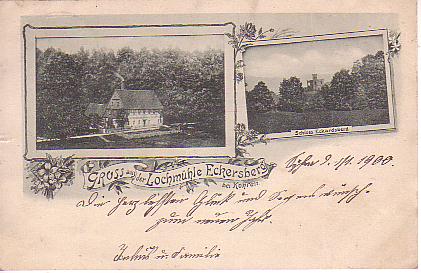 Schloss Eckersberg
Gruss aus der Lochmühle Eckersberg
bei Kohren
1900.
Die herzlichsten Glück und Segenswünsche
zum neuen Jahr.
u Familie